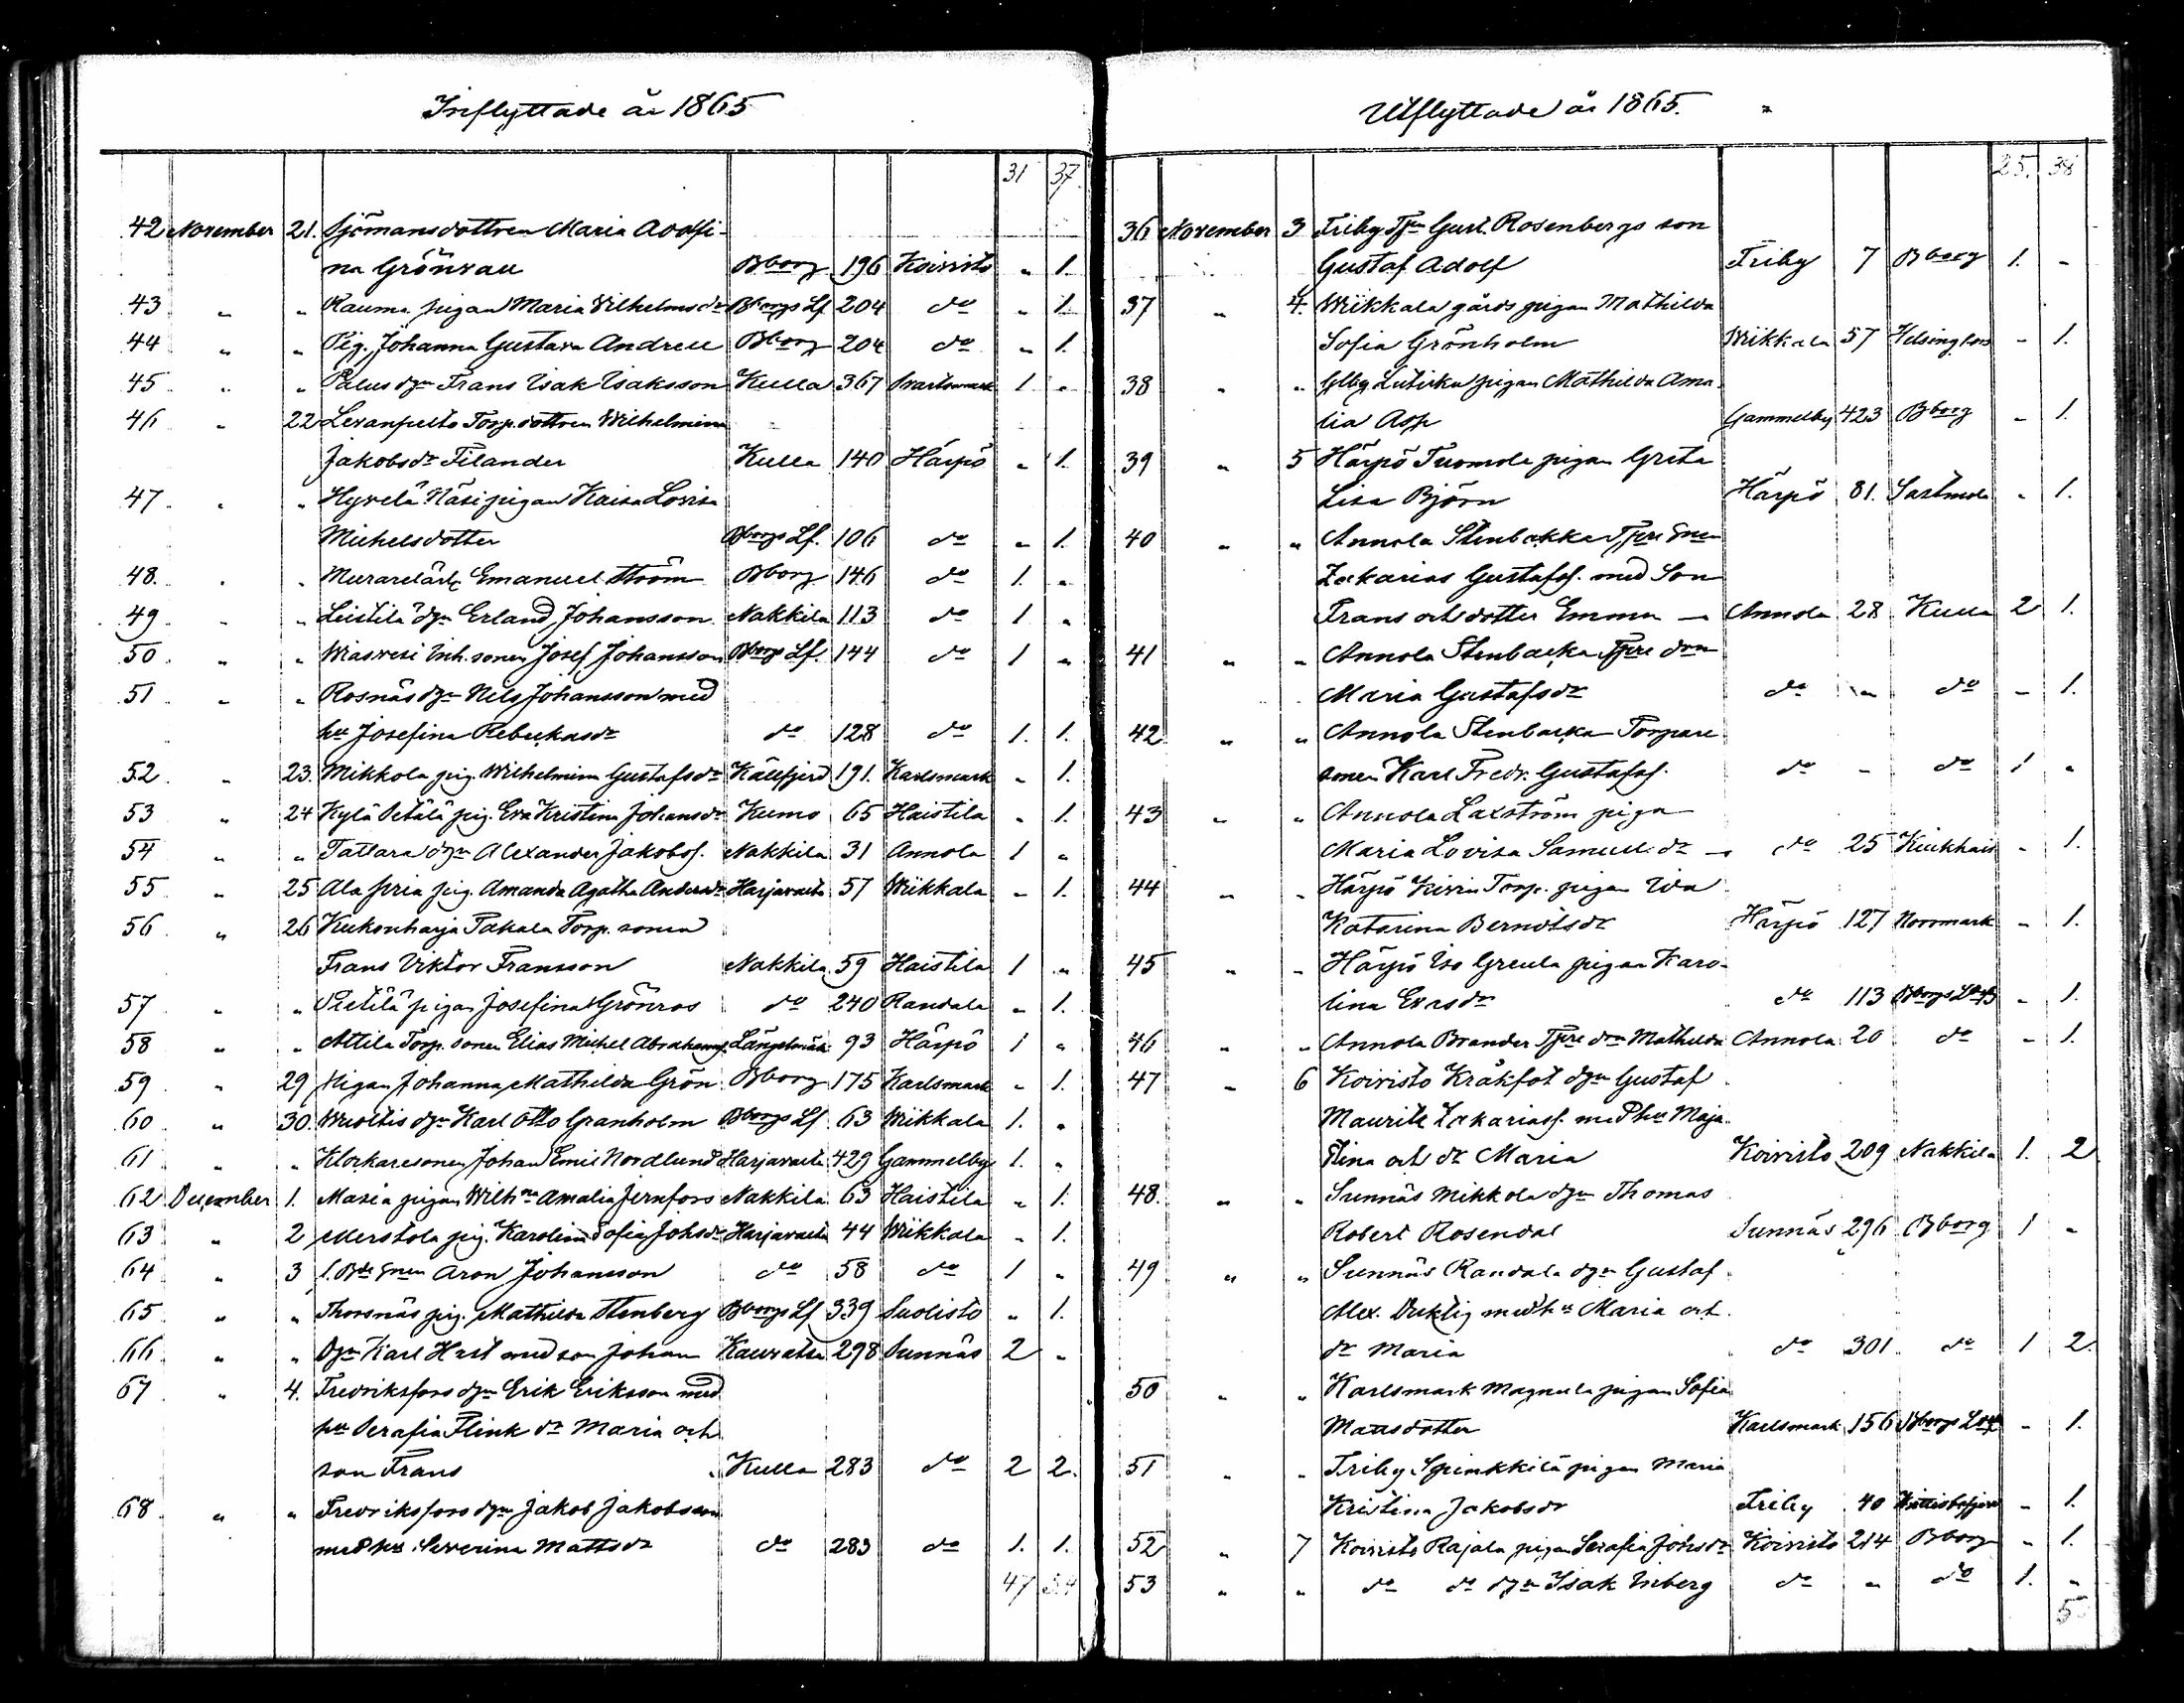 Inflyttade år 1865
31 37
42 November 21. Sjömansdottren Maria Adolfi-
na Grönvall Bborg 196 Koivisto „ 1.
43 „ „ Rauma pigan Maria Wilhelmsdr Bborgs Lf. 204 do „ 1.
44 „ „ Pig. Johanna Gustava Andrell Bborg 204 do „ 1.
45 „ „ Palus dgn Frans Isak Isaksson Kulla 367 Svartsmark 1 „
46 „ 22 Levanpelto Torp.dottren Wilhelmina
Jakobsdr Filander Kulla 140 Härpö „ 1.
47 „ „ Hyvelä Näsi pigan Kaisa Lovisa
Michelsdotter Bborgs Lf. 106 do „ 1.
48. „ „ Murarelärl. Emanuel Ström Bborg 146 do 1. „
49 „ „ Leistilä dgn Erland Johansson Nakkila 113 do 1 „
50 „ „ Wiasvesi Inh. sonen Josef Johansson Bborgs Lf. 144 do 1 „
51 „ „ Rosnäs dgn Nils Johansson med
hu Josefina Rebeckasdr do 128 do 1. 1.
52 „ 23. Mikkola pig. Wilhelmina Gustafsdr Källfjerd 191. Karlsmark „ 1.
53 „ 24 Kylä Petälä pig. Eva Kristina Johansdr Kumo 65 Haistila „ 1.
54 „ „ Tattara dgn Alexander Jakobsf. Nakkila 31 Annola 1 „
55 „ 25 Ala piria pig. Amanda Agatha Andersdr Harjavalta 57 Wiikkala „ 1.
56 „ 26 Kukonharja Pakala Torp. sonen
Frans Viktor Fransson Nakkila 59 Haistila 1 „
57 „ „ Pietilä pigan Josefina Grönros do 240 Randala „ 1.
58 „ „ Attila Torp. sonen Elias Michel Abrahamsf. Längelmäki 93 Härpö 1 „
59 „ 29 Pigan Johanna Mathilda Grön Bborg 175 Karlsmark „ 1.
60 „ 30. Wuoltis dgn Karl Otto Granholm Bborgs Lf. 63 Wiikkala 1. „
61 „ „ Klockaresonen Johan Emil Nordlund Harjavalta 429 Gammelby 1. „
62 December 1. Masia pigan Wilhna Amalia Jernfors Nakkila 63 Haistila „ 1.
63 „ 2 Merstola pig. Karolina Sofia Johsdr Harjavalta 44 Wiikkala „ 1.
64 „ 3 f. Bde Gnen Aron Johansson do 58 do 1 „
65 „ „ Thorsnäs pig. Mathilda Stenberg Bborgs Lf 339 Suolisto „ 1.
66 „ „ Dgn Karl Hast med son Johan Kauvatsa 298 Sunnäs 2 „
67 „ 4. Fredriksfors dgn Erik Eriksson med
hu Serafia Flink dr Maria och
son Frans Kulla 283 do 2 2.
68 „ „ Fredriksfors dgn Jakob Jakobsson
med hu Severina Mattsdr do 283 do 1. 1.
47 54
Utflyttade år 1865.
25. 38
36 November 3 Friby Tjn Gust. Rosenbergs son
Gustaf Adolf Friby 7 Bborg 1. „
37 „ 4. Wiikkala gårds pigan Mathilda
Sofia Grönholm Wiikkala 57 Helsingfors „ 1.
38 „ „ Glby Lutiku pigan Mathilda Ama-
lia Asp Gammelby 423 Bborg „ 1.
39 „ 5 Härpö Tuomola pigan Greta
Lisa Björn Härpö 81. Sastmola „ 1.
40 „ „ Annola Stenbakka Tjre Gnen
Zakarias Gustafsf. med Son
Frans och dotter Emma Annola 28 Kulla 2 1.
41 „ „ Annola Stenbacka Tjre dren
Maria Gustafsdr do „ do „ 1.
42 „ „ Annola Stenbacka Torpare
sonen Karl Fredr. Gustafsf. do „ do 1 „
43 „ „ Annola Laxström piga
Maria Lovisa Samuelsdr do 25 Kiukhais „ 1.
44 „ „ Härpö Kivin Torp. pigan Ida
Katarina Berndtsdr Härpö 127 Norrmark „ 1.
45 „ „ Härpö Iso Greula pigan Karo-
lina Evasdr do 113 Bborgs Lf „ 1.
46 „ „ Annola Brander Tjre dren Mathilda Annola 20 do „ 1.
47 „ 6 Koivisto Kråkfot dgn Gustaf
Maurits Zakariasf. med hu Maja
Stina och dr Maria Koivisto 209 Nakkila 1. 2
48. „ „ Sunnäs Mikkola dgn Thomas
Robert Rosendal Sunnäs 296 Bborg 1 „
49 „ „ Sunnäs Randala dgn Gustaf
Alex. Duktig med hu Maria och
dr Maria do 301 do 1 2.
50 „ „ Karlsmark Magnula pigan Sofia
Mattsdotter Karlsmark 156 Bborgs Lf „ 1.
51 „ „ Friby Spinkkilä pigan Maria
Kristina Jakobsdr Friby 40 Hvittisbofjerd „ 1.
52 „ 7 Koivisto Rajala pigan Serafia Johsdr Koivisto 214 Bborg „ 1.
53 „ „ do do dgn Isak Inberg do „ do 1. „
5